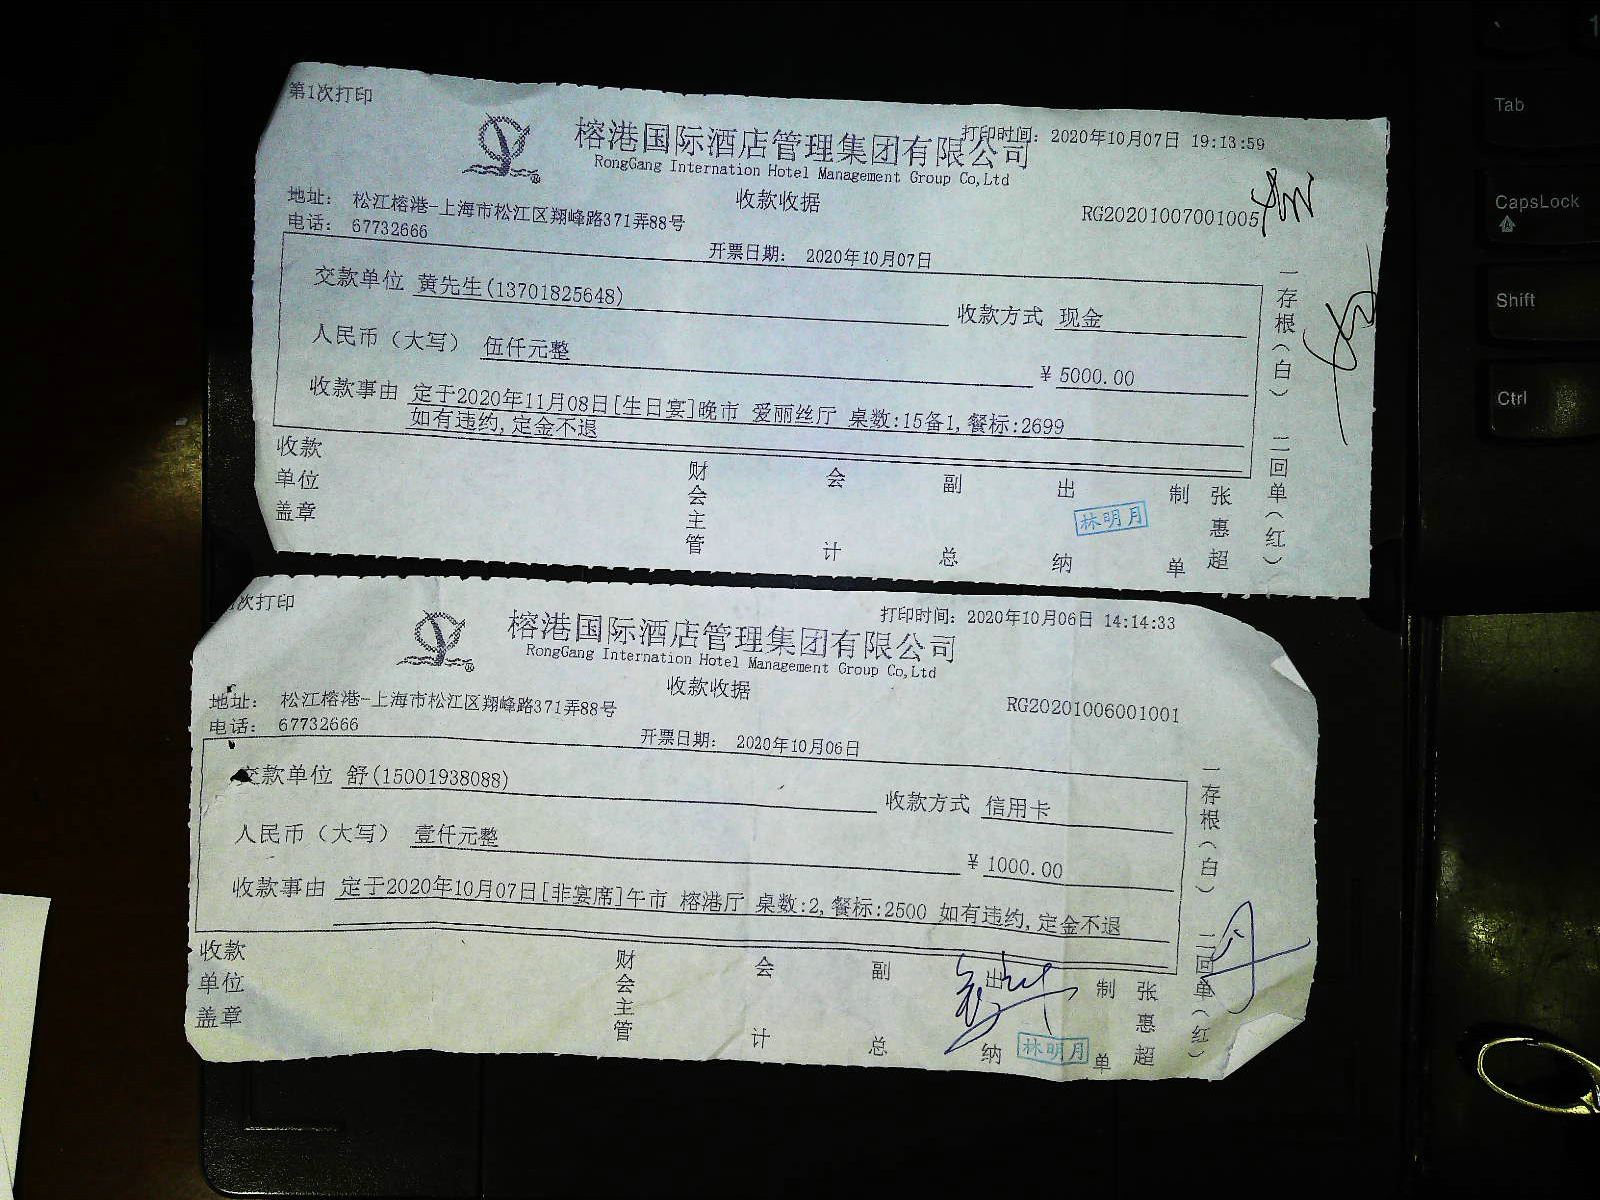 第1次打印
榕港国际酒店管理集团有限公司
打印时间: 2020年10月07日 19:13:59
RongGang Internation Hotel Management Group Co,Ltd
收款收据
地址: 松江榕港-上海市松江区翔峰路371弄88号
RG20201007001005
电话: 67732666
开票日期: 2020年10月07日
交款单位 黄先生(13701825648)
收款方式 现金
人民币(大写) 伍仟元整
¥ 5000.00
收款事由 定于2020年11月08日[生日宴]晚市 爱丽丝厅 桌数:15备1,餐标:2699
如有违约,定金不退
收款单位盖章
财会主管
会计
副总
出纳
林明月
制单
张惠超
一存根(白) 二回单(红)
次打印
榕港国际酒店管理集团有限公司
打印时间: 2020年10月06日 14:14:33
RongGang Internation Hotel Management Group Co,Ltd
收款收据
地址: 松江榕港-上海市松江区翔峰路371弄88号
RG20201006001001
电话: 67732666
开票日期: 2020年10月06日
交款单位 舒(15001938088)
收款方式 信用卡
人民币(大写) 壹仟元整
¥ 1000.00
收款事由 定于2020年10月07日[非宴席]午市 榕港厅 桌数:2,餐标:2500 如有违约,定金不退
收款单位盖章
财会主管
会计
副总
出纳
林明月
制单
张惠超
一存根(白) 二回单(红)
Tab
CapsLock
Shift
Ctrl